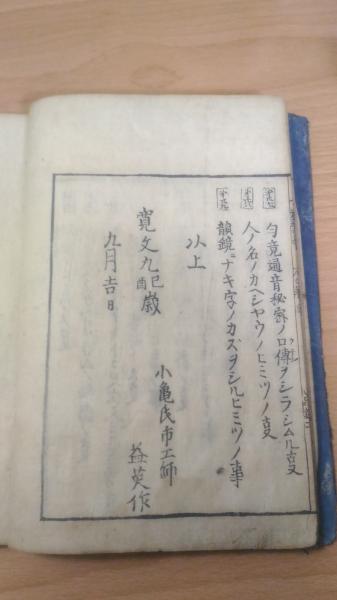 勻竟通音秘密ノ口傳ヲシラシムル叓
人ノ名ノカヘシヤウノヒミツノ叓
韻鏡ニナキ字ノカズヲシルヒミツノ事
以上
寛文九己酉歳
九月吉日
小亀氏市工師
益英作